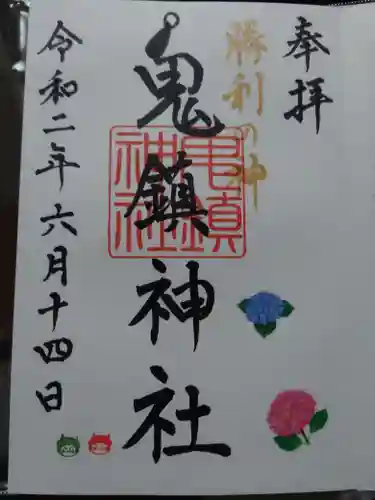 奉拝
勝利の神
鬼鎮神社
鬼鎮神社
令和二年六月十四日